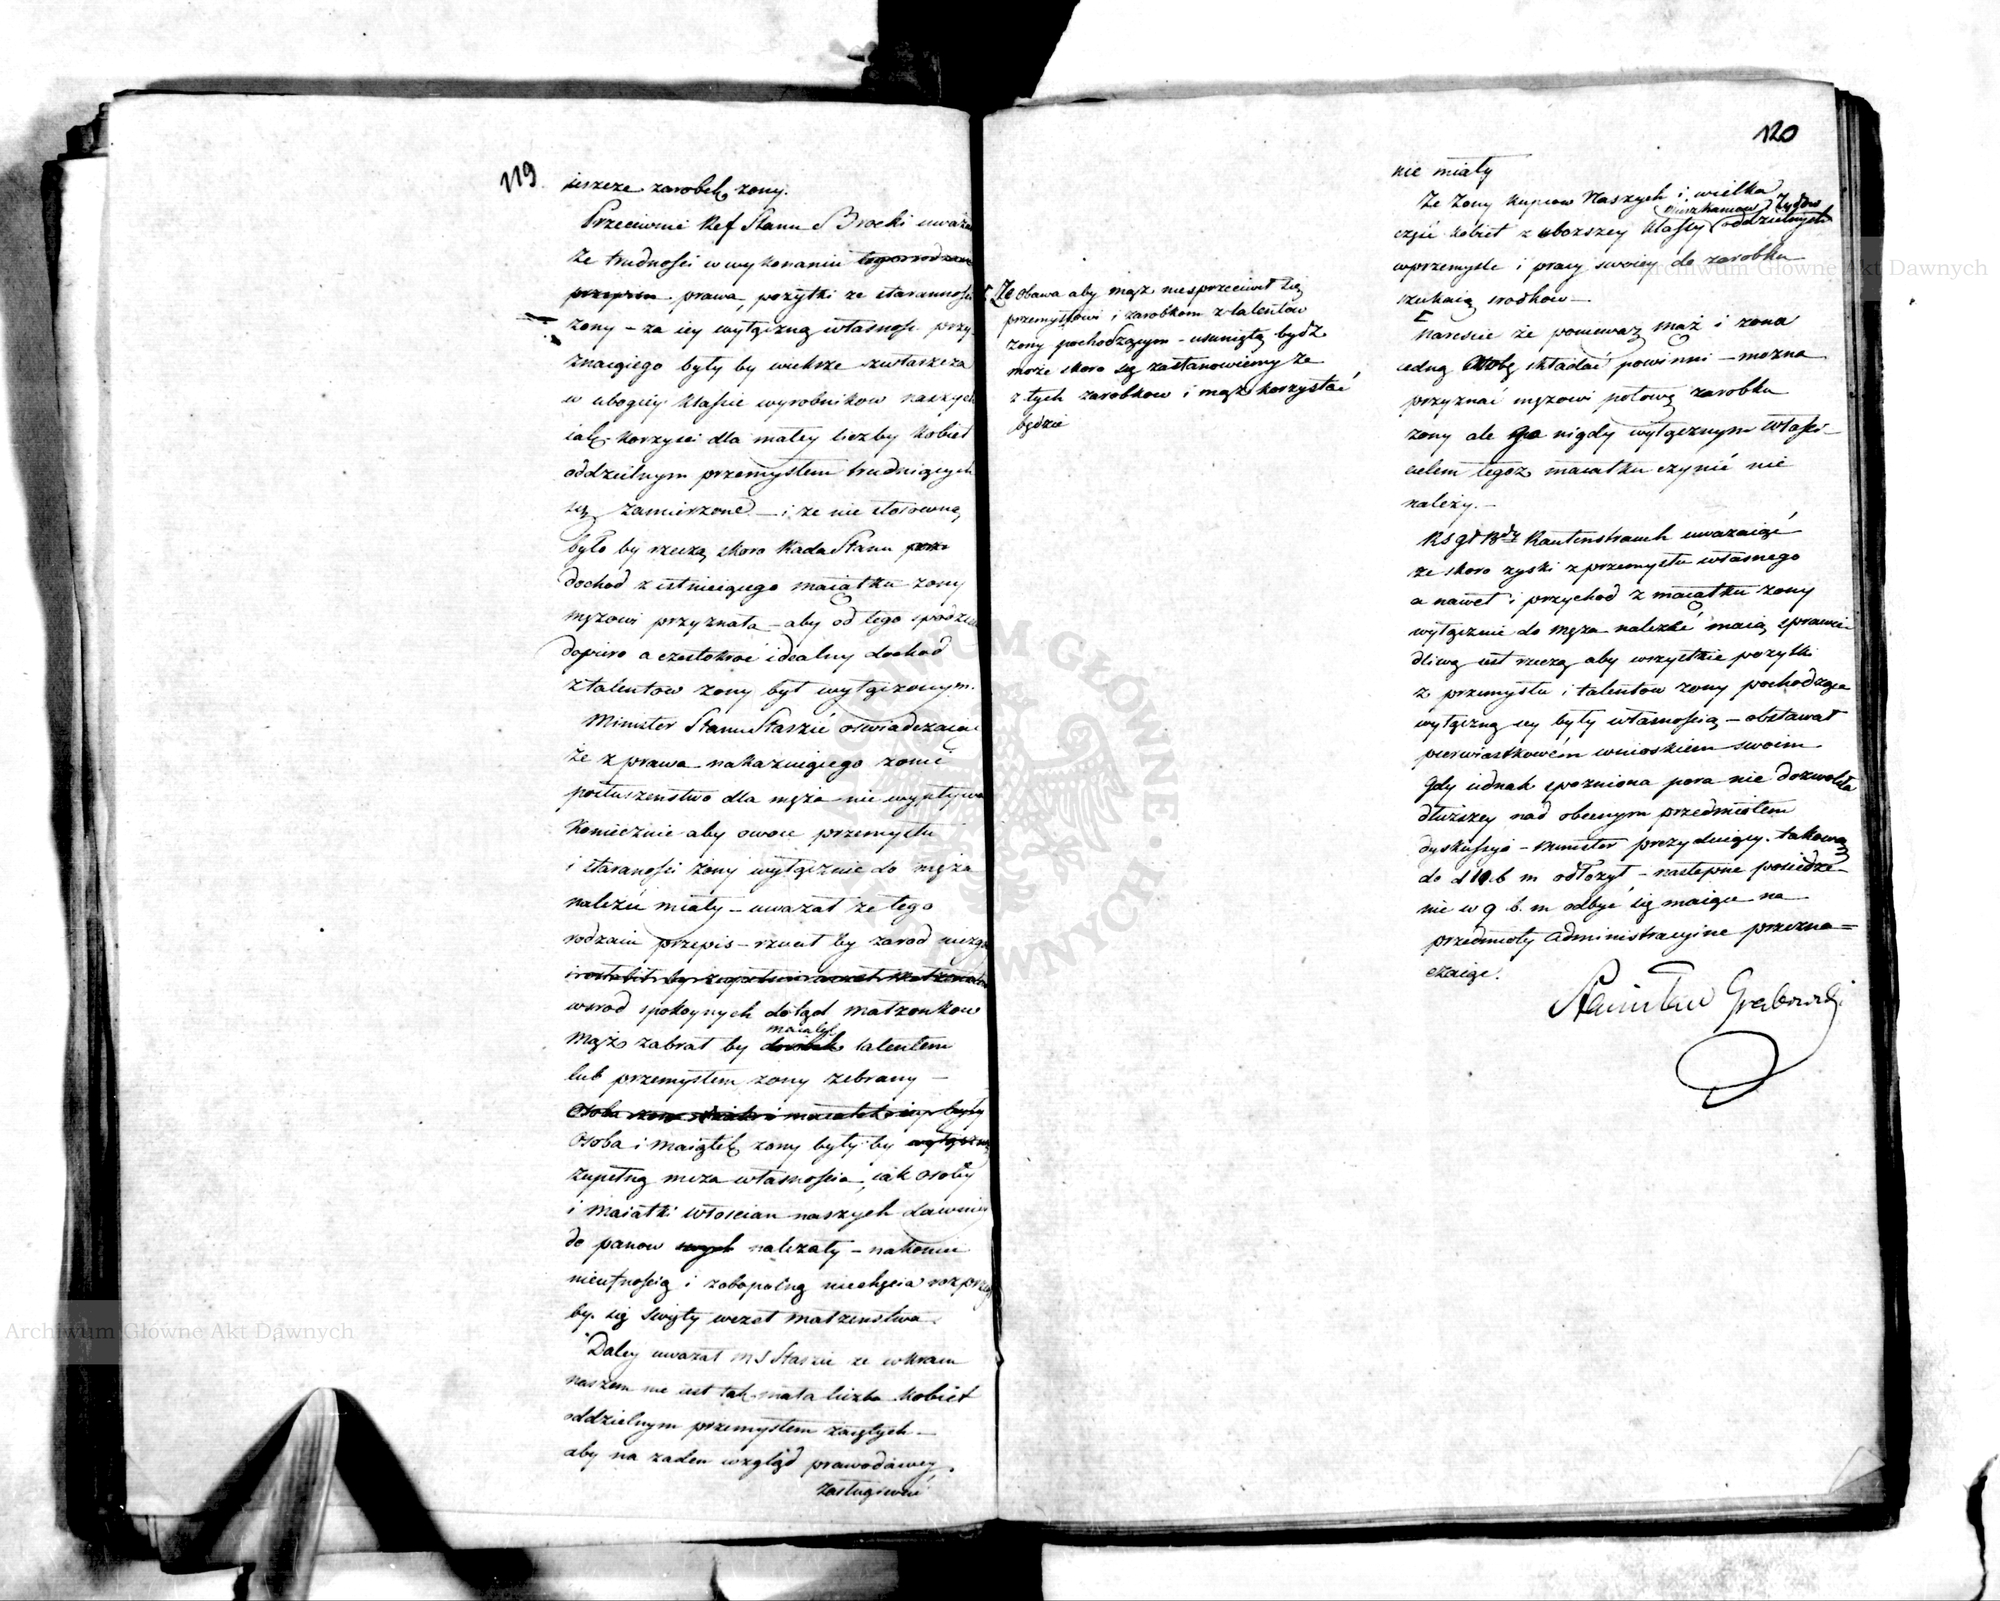 119
ieszcze zarobek żony.
Przeciwnie Ref Stanu Brocki uważa
że trudności w wykonaniu
prawa, pożytki ze staranności
żony – za iey wyłączną własność przy-
znaiącego były by większe zwłaszcza
w ubogiey klassie wyrobników naszych
iak korzyści dla małey liczby kobiet
oddzielnym przemysłem trudniących
się zamierzone – i że nie stosowną
było by rzeczą skoro Rada Stanu
dochod z istnieiącego maiątku żony
mężowi przyznała – aby od tego
dopiero a częstokroć idealny dochod
z talentow żony był wyłączonym.
Minister Stanu Staszic oswiadczaiąc
że z prawa nakazuiącego żonie
posłuszeństwo dla męża nie wypływa
koniecznie aby owoce przemysłu
i staranności żony wyłącznie do męża
należeć miały – uważał że tego
rodzaiu przepis – rzucił by zarod niezgo
wsrod spokoynych dotąd małżonkow
maiątek
Mąż zabrał by talentem
lub przemysłem żony zebrany –
Osoba i maiątek żony były by
zupełną męża własnością, iak osoby
i maiątki włościan naszych dawniey
do panow należały – nakoniec
nieufnością i zobopolną niechęcią
by się święty węzeł małżeństwa.
Daley uważał M S Staszic że w kraiu
naszem nie iest tak mała liczba kobiet
oddzielnym przemysłem zaiętych –
aby na żaden wzgląd prawodawcy
zasługiwać
120
Że obawa aby mąż nie sprzeciwił się
przemysłowi i zarobkom z talentow
żony pochodzącym – usuniętą bydź
może skoro się zastanowiemy że
z tych zarobkow i mąż korzystać
będzie
nie miały
Że żony kupcow naszych i wielka
mieszkancow Żydow
część kobiet z uboższey klassy oddzielnych
w przemyśle i pracy swoiey do zarobku
szukaią srodkow –
Nareście że ponieważ mąż i żona
iedną osobę składać powinni – można
przyznać mężowi połowę zarobku
żony ale go nigdy wyłącznym właści-
cielem tegoż maiątku czynić nie
należy. –
Rautenstrauch uważaiąc
że skoro zyski z przemysłu własnego
a nawet i przychod z maiątku żony
wyłącznie do męża należeć maią sprawie-
dliwą iest rzeczą aby wszystkie pożytki
z przemysłu i talentow żony pochodzące
wyłączną iey były własnością – obstawał
pierwiastkowem wnioskiem swoim
Gdy iednak spozniona pora nie dozwoliła
dłuższey nad obecnym przedmiotem
dyskussyi – Minister prezyduiący takową
do d 10 b m odłożył – następne posiedze-
nie w 9 b. m odbyć się maiące na
przedmioty administracyine przezna=
czaiąc.
Stanisław Grabowski